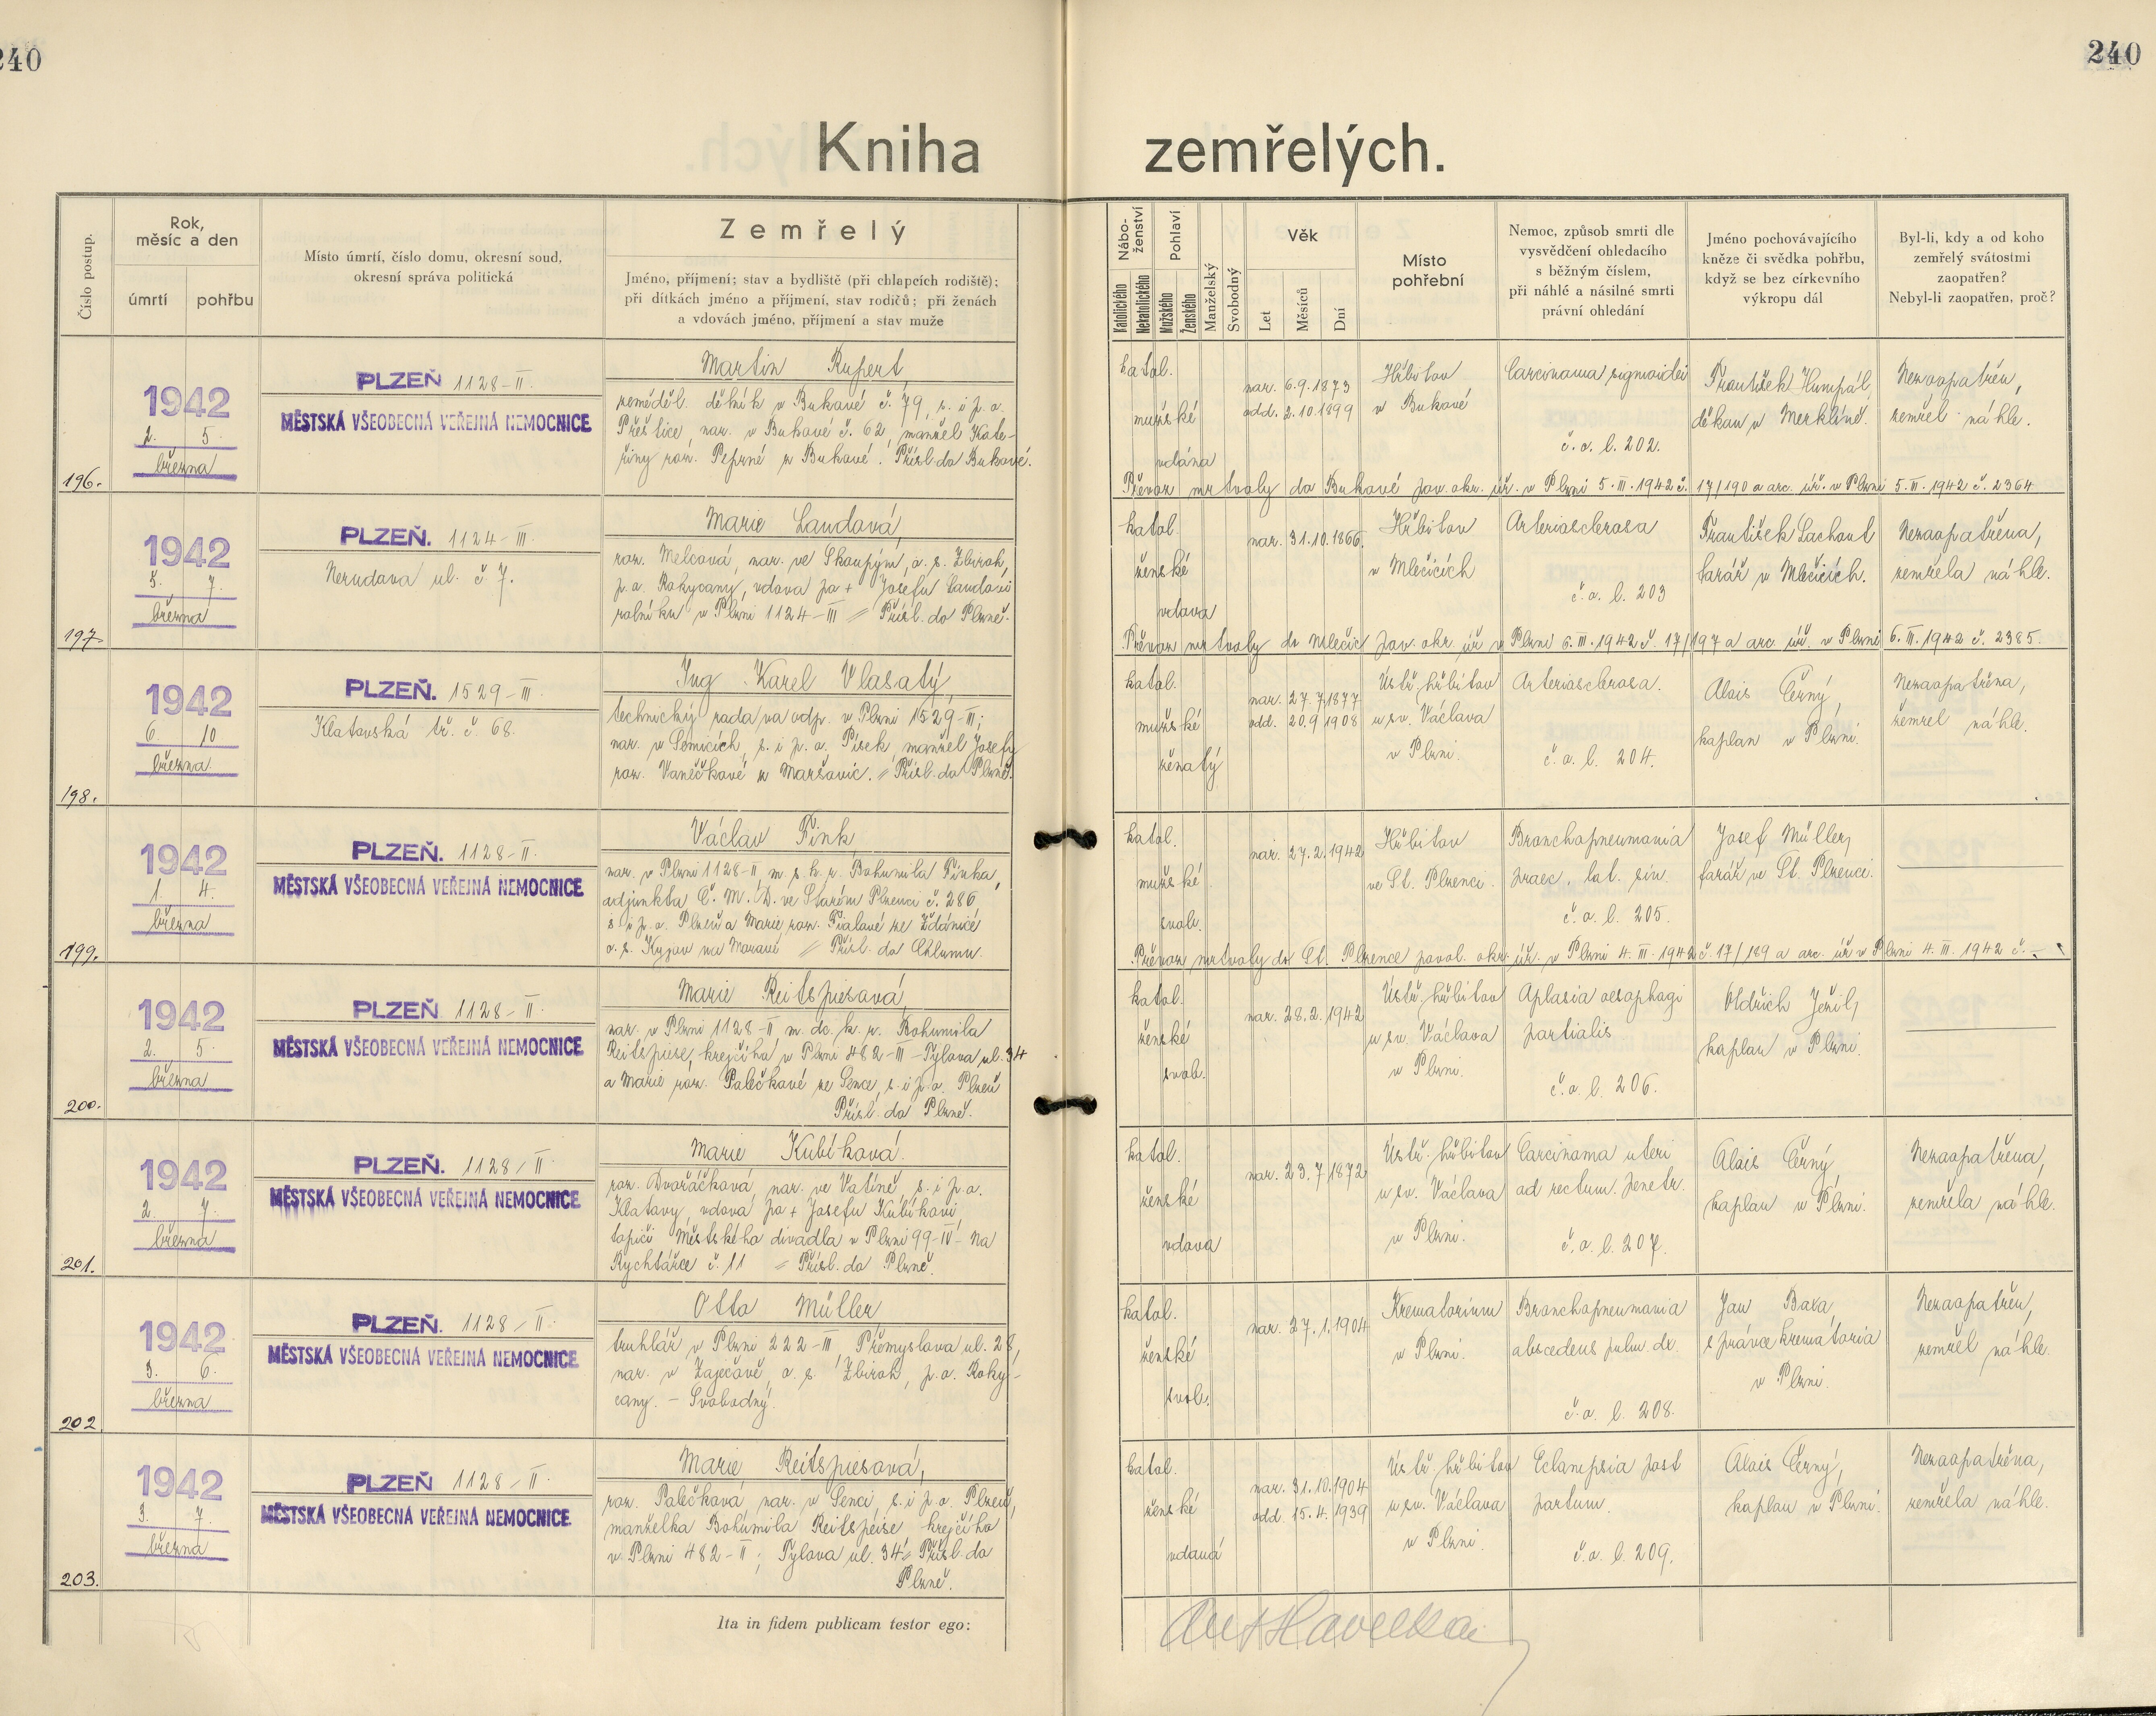 240
240
Kniha zemřelých.
Číslo postup.
Rok, měsíc a den
úmrtí
pohřbu
Místo úmrtí, číslo domu, okresní soud,
okresní správa politická
Zemřelý
Jméno, příjmení; stav a bydliště (při chlapcích rodiště);
při dítkách jméno a příjmení, stav rodičů; při ženách
a vdovách jméno, příjmení a stav muže
Nábo-
ženství
Katolického
Nekatolického
Pohlaví
Mužského
Ženského
Manželský
Svobodný
Věk
Let
Měsíců
Dní
Místo
pohřební
Nemoc, způsob smrti dle
vysvědčení ohledacího
s běžným číslem,
při náhlé a násilné smrti
právní ohledání
Jméno pochovávajícího
kněze či svědka pohřbu,
když se bez církevního
výkropu dál
Byl-li, kdy a od koho
zemřelý svátostmi
zaopatřen?
Nebyl-li zaopatřen, proč?
196.
1942
2. 5.
března
PLZEŇ 1128-II.
MĚSTSKÁ VŠEOBECNÁ VEŘEJNÁ NEMOCNICE
Martin Rupert,
zeměděl. dělník v Bukové č. 79, s. i p. o.
Přeštice, nar. v Bukové č. 62, manžel Kate-
řiny roz. Peprné z Bukové. Přísl. do Bukové.
katol.
mužské
vdána
nar. 6.9.1873
odd. 2.10.1899
Hřbitov
v Bukové
Carcinoma sigmoidei
č. o. l. 202.
František Humpál,
děkan v Merklíně.
Nezaopatřen,
zemřel náhle.
Převoz mrtvoly do Bukové pov. okr. úř. v Plzni 5.III.1942 č. 17/190 a arc. úř. v Plzni 5.III.1942 č. 2364
197.
1942
5. 7.
března
PLZEŇ. 1124-III.
Nerudova ul. č 7.
Marie Laudová,
roz. Melcová, nar. ve Skoupým, o. s. Zbiroh,
p. o. Rokycany, vdova po + Josefu Laudovi
rolníku v Plzni 1124-III = Přísl. do Plzně.
katol.
ženské
vdova
nar. 31.10.1866.
Hřbitov
v Mlečicích
Arteriosclerosa
č. o. l. 203
František Lachout
farář v Mlečicích.
Nezaopatřena,
zemřela náhle.
Převoz mrtvoly do Mlečic pov. okr. úř v Plzni 6.III.1942 č. 17/197 a arc. úř. v Plzni 6.III.1942 č. 2385.
198.
1942
6. 10
března
PLZEŇ. 1529-III.
Klatovská tř. č. 68.
Ing. Karel Vlasatý,
technický rada va odp. v Plzni 1529-III;
nar. v Semicích, s. i p. o. Písek, manžel Josefy
roz. Vaněčkové z Maršovic. = Přísl. do Plzně.
katol.
mužské
ženatý
nar. 27.7.1877
odd. 20.9.1908
Ústř. hřbitov
u sv. Václava
v Plzni.
Arteriosclerosa.
č. o. l. 204.
Alois Černý,
kaplan v Plzni.
Nezaopatřena,
zemřel náhle.
199.
1942
1. 4.
března
PLZEŇ. 1128-II.
MĚSTSKÁ VŠEOBECNÁ VEŘEJNÁ NEMOCNICE
Václav Fink,
nar. v Plzni 1128-II, m. s. k. r. Bohumila Finka,
adjunkta Č. M. D. ve Starém Plzenci č. 286
s i p. o. Plzeň a Marie roz. Fialové ze Ždánic
o. s. Kyjov na Moravě = Přísl. do Chlumu.
katol.
mužské
svob.
nar. 27.2.1942
Hřbitov
ve St. Plzenci.
Bronchopneumonia
praec. lat. sin.
č. o. l. 205.
Josef Müller,
farář ve St. Plzenci.
Převoz mrtvoly do St. Plzence povol. okr. úř. v Plzni 4.III.1942 č. 17/189 a arc. úř v Plzni 4.III.1942 č. -.
200.
1942
2. 5.
března
PLZEŇ 1128-II.
MĚSTSKÁ VŠEOBECNÁ VEŘEJNÁ NEMOCNICE
Marie Reitspiesová,
nar. v Plzni 1128-II m. dc. k. r. Bohumila
Reitspiese, krejčího v Plzni 482-III-Tylova ul. 34
a Marie roz. Palečkové ze Sence, s. i p. o. Plzeň
Přísl. do Plzně.
katol.
ženské
svob.
nar. 28.2.1942
Ústř. hřbitov
u sv. Václava
v Plzni.
Aplasia oesophagi
partialis.
č. o. l. 206.
Oldřich Ježil,
kaplan v Plzni.
201.
1942
2. 7.
března
PLZEŇ. 1128/II.
MĚSTSKÁ VŠEOBECNÁ VEŘEJNÁ NEMOCNICE
Marie Kubíková.
roz. Dvořáčková, nar. ve Vatíně s. i p. o.
Klatovy, vdova po + Josefu Kubíkovi
topiči Městského divadla v Plzni 99-IV- Na
Rychtářce č. 11 = Přísl. do Plzně.
katol.
ženské
vdova
nar. 23.7.1872
Ústř. hřbitov
u sv. Václava
v Plzni.
Carcinoma uteri
ad rectum penetr.
č. o. l. 207.
Alois Černý,
kaplan v Plzni.
Nezaopatřena,
zemřela náhle.
202.
1942
3. 6.
března
PLZEŇ. 1128/II.
MĚSTSKÁ VŠEOBECNÁ VEŘEJNÁ NEMOCNICE
Otto Müller,
truhlář v Plzni 222-III Přemyslova ul. 28,
nar. v Zaječově, o. s. Zbiroh, p. o. Roky-
cany. - Svobodný.
katol.
ženské
svob.
nar. 27.1.1904
Krematorium
v Plzni.
Bronchopneumonia
abscedens pulm. dx.
č. o. l. 208.
Jan Baxa,
správce krematoria
v Plzni.
Nezaopatřen,
zemřel náhle.
203.
1942
3. 7.
března
PLZEŇ 1128-II.
MĚSTSKÁ VŠEOBECNÁ VEŘEJNÁ NEMOCNICE.
Marie Reitspiesová,
roz. Palečková, nar. v Senci, s. i p. o. Plzeň,
manželka Bohumila Reitspeise, krejčího
v Plzni 482-II; Tylova ul. 34 = Přísl. do
Plzně.
katol.
ženské
vdaná
nar. 31.10.1904
odd. 15.4.1939
Ústř. hřbitov
u sv. Václava
v Plzni.
Eclampsia post
partum.
č. o. l. 209.
Alois Černý,
kaplan v Plzni.
Nezaopatřena,
zemřela náhle.
Ita in fidem publicam testor ego:
Ant Havelka